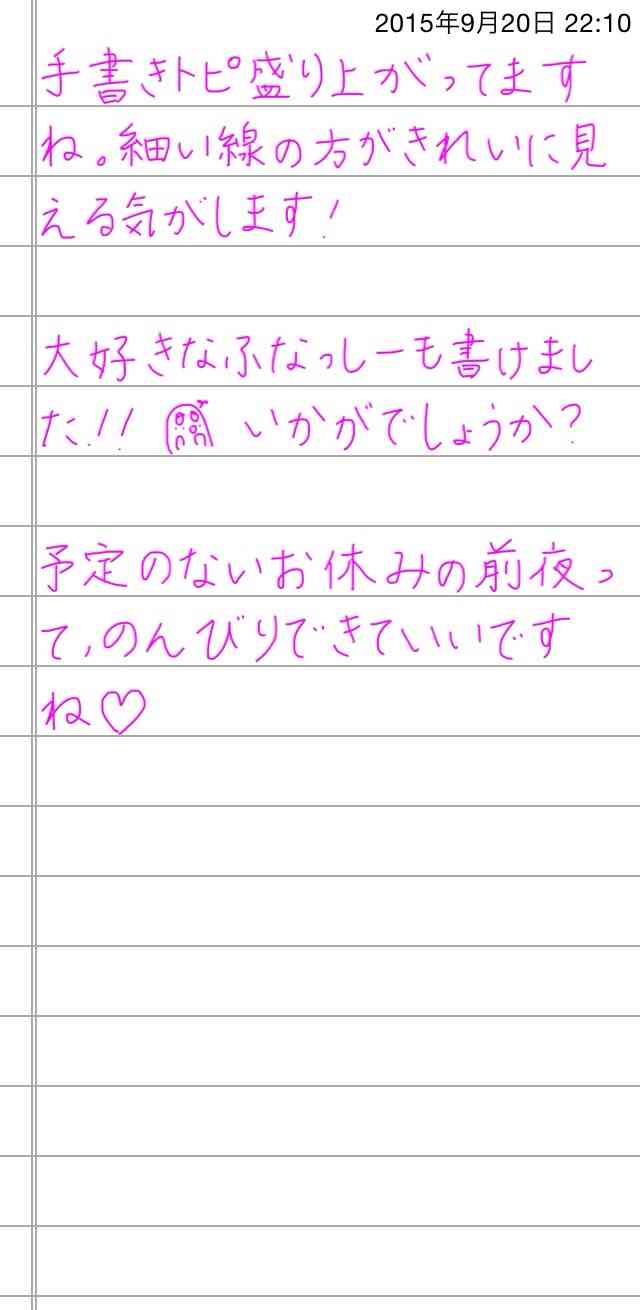 2015年9月20日 22:10
手書きトピ盛り上がってます
ね。細い線の方がきれいに見
える気がします!
大好きなふなっしーも書けまし
た!! いかがでしょうか?
予定のないお休みの前夜っ
て、のんびりできていいです
ね♡